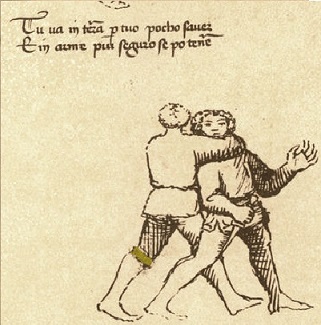 Tu va in tera p tuo pocho saver
E in arme piu seguro se po tenere